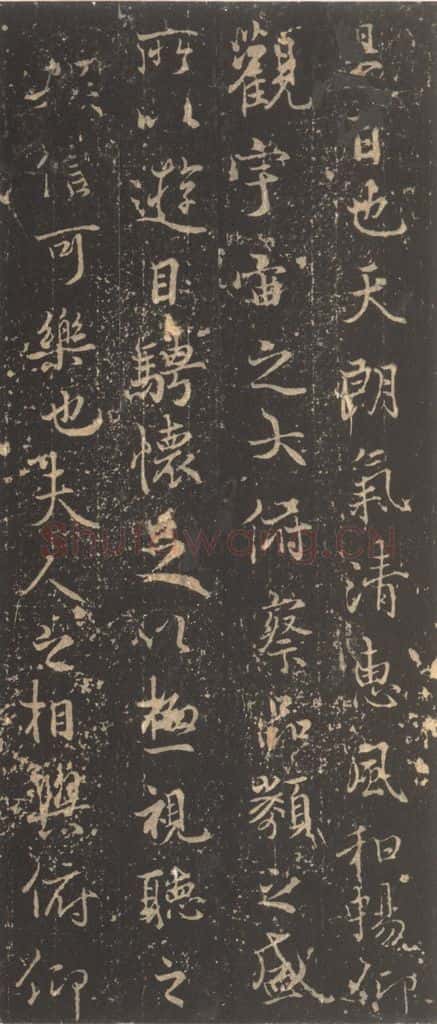 是日也天朗氣清惠風和暢仰
觀宇宙之大俯察品類之盛
所以遊目騁懷足以極視聽之
娛信可樂也夫人之相與俯仰
shufawang.cn